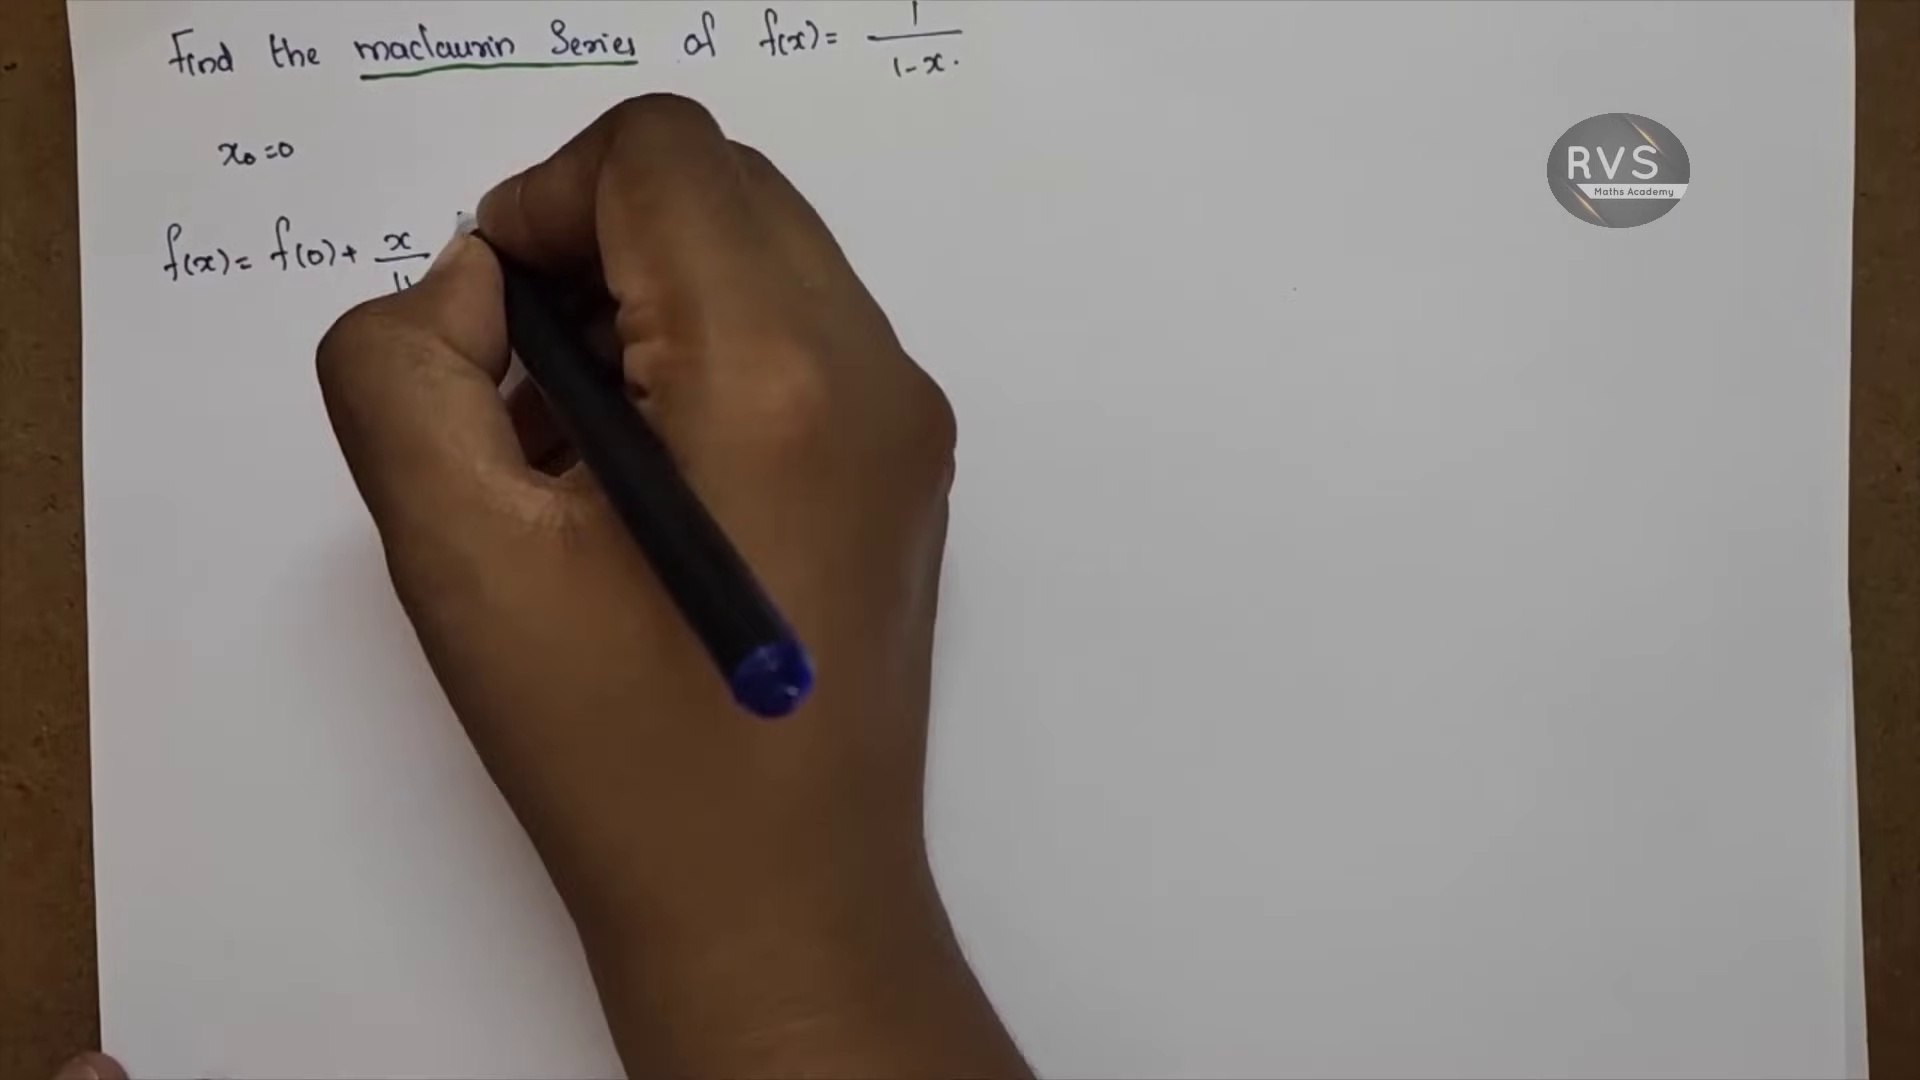 Find the maclaurin Series of f(x) = 1/1-x.
x₀ = 0
f(x) = f(0) + x/1!
RVS
Maths Academy